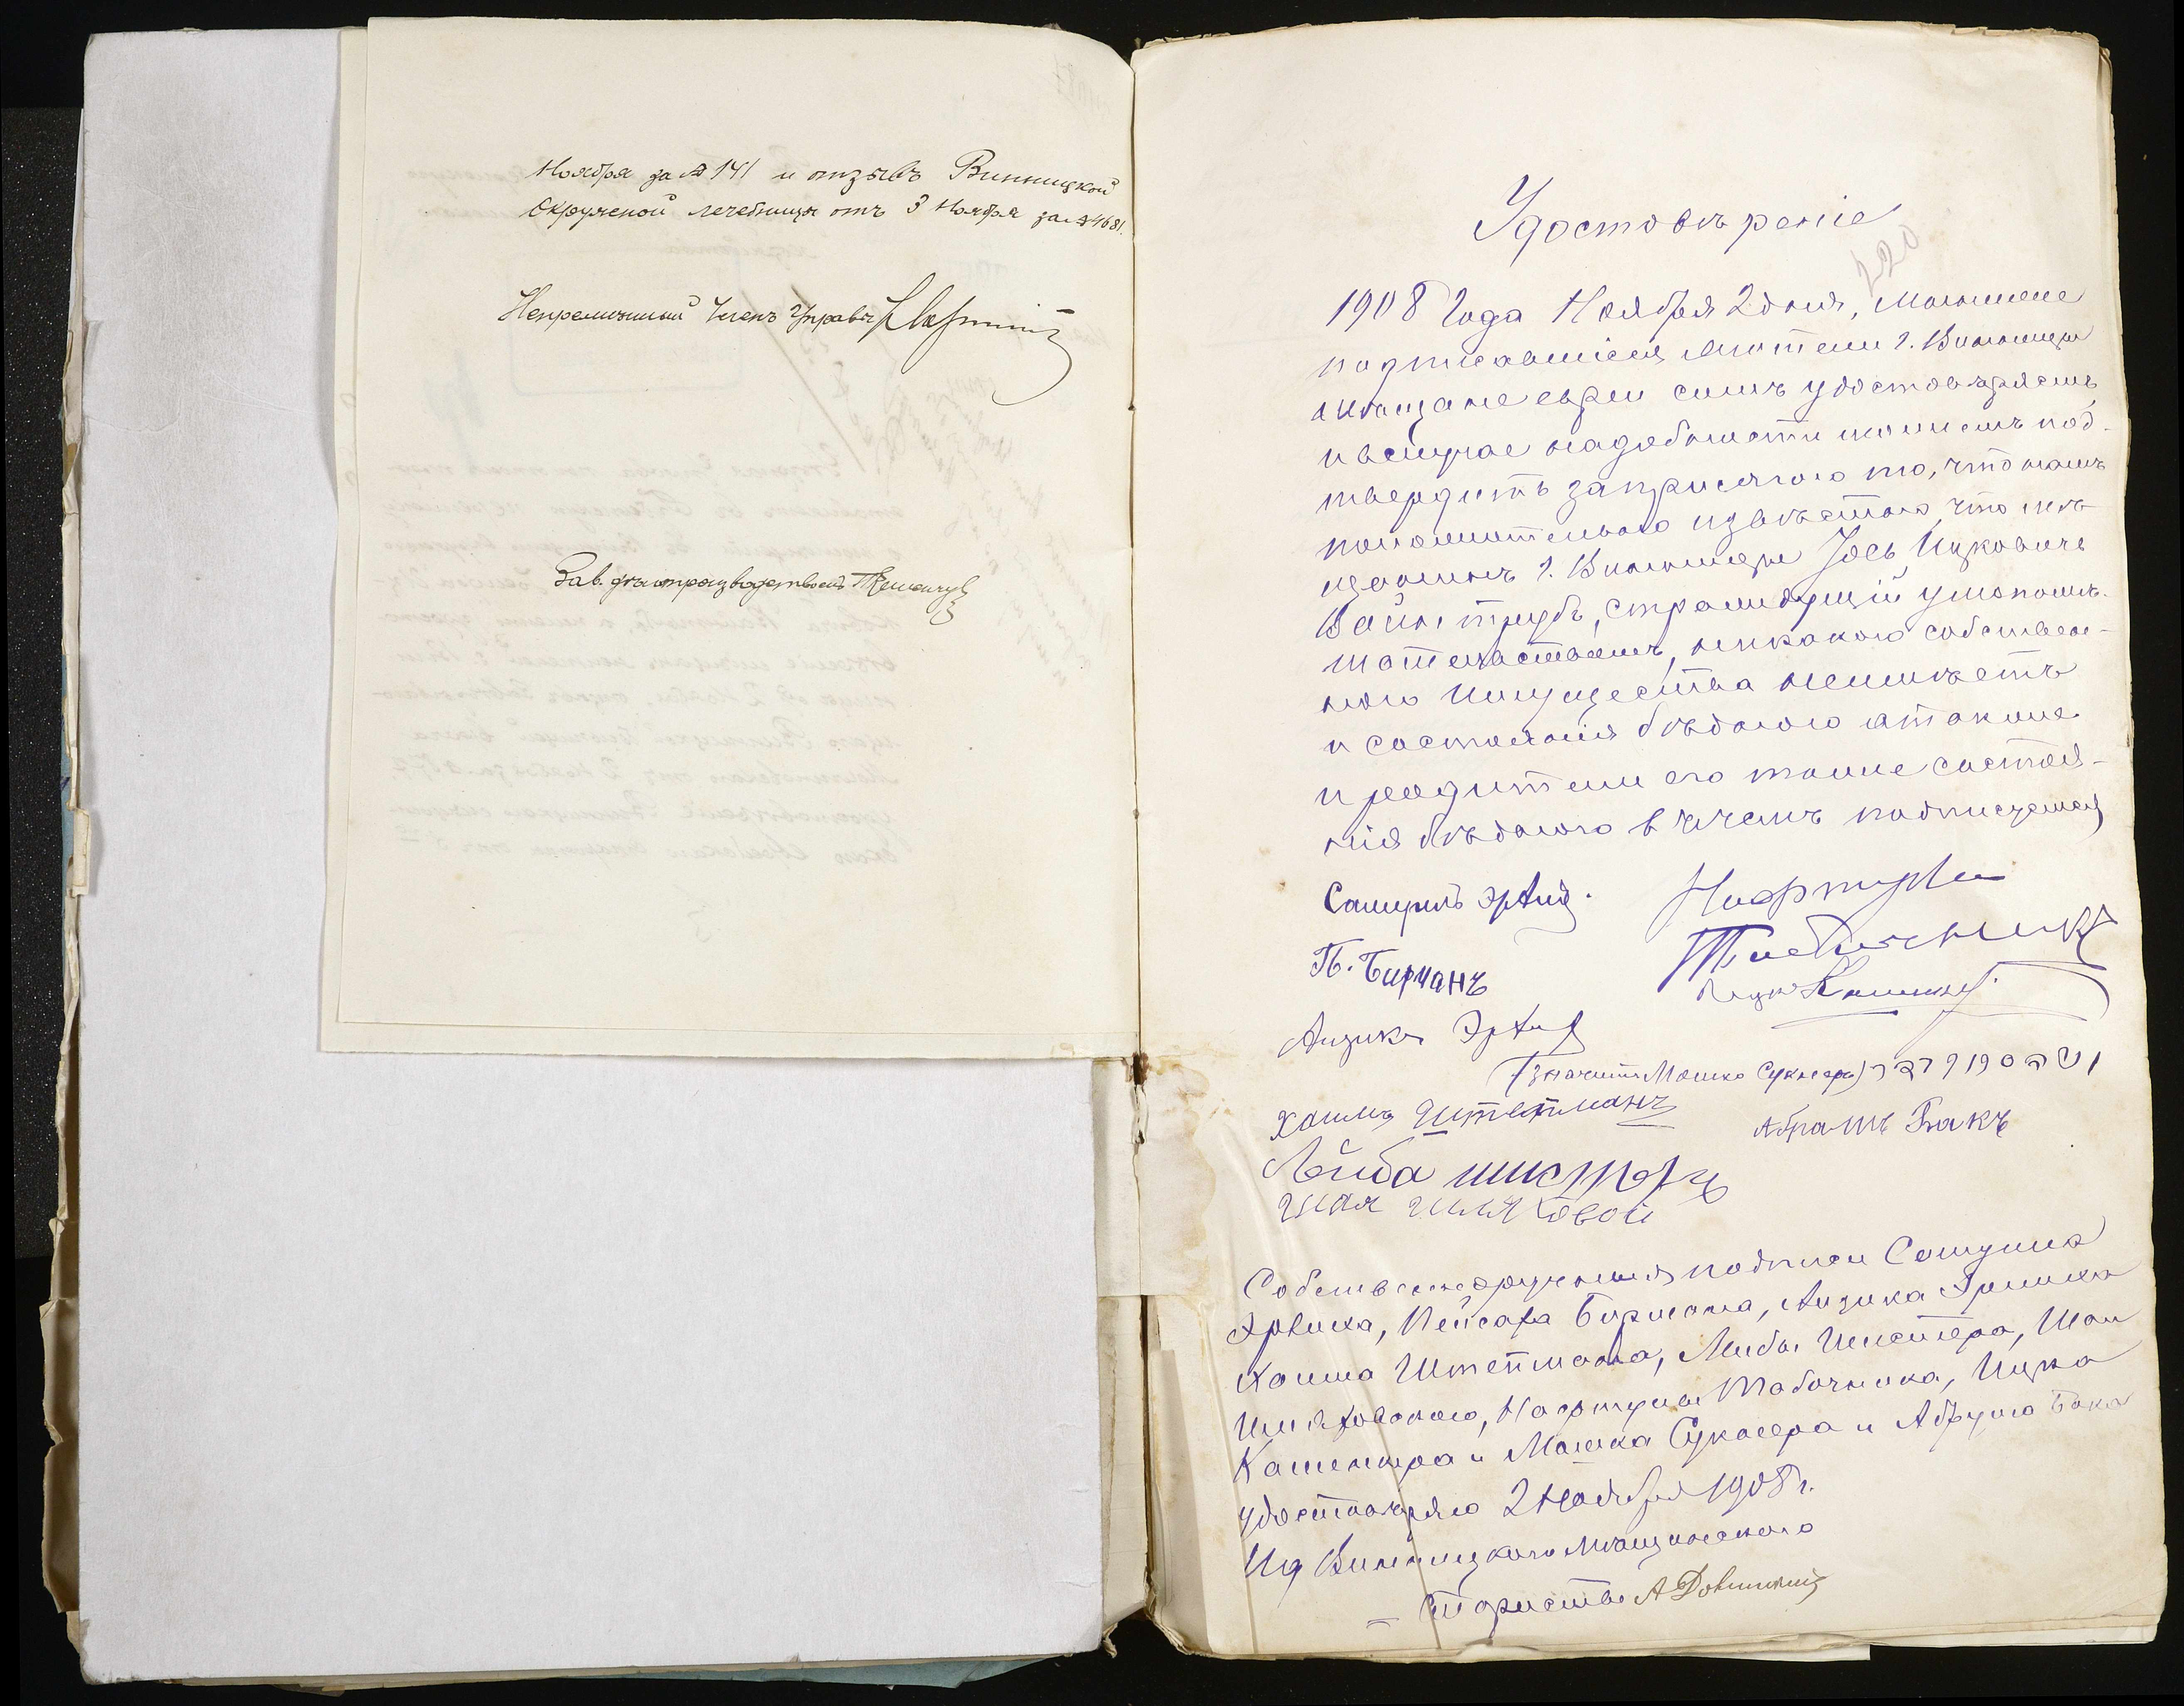 Ноября за № 141 и отзывъ Винницкой
Окружной лечебницы отъ 3 Ноября за № 4681.
Непремѣнный Членъ Управы
Зав. дѣлопроизводствомъ
Удостовѣреніе
220
1908 Года Ноября 2 дня, мы ниже
подписавшіеся жители г. Винницы
мѣщане евреи симъ удостовѣряемъ
и вслучае надобности можемъ под-
твердить заприсягою то, что намъ
положительно извѣстно, что мѣ-
щанинъ г. Винницы Іось Ицковичъ
Вайнтрубъ, страмдущій умопомѣ-
шательствомъ, никакого собствен-
ного имущества неимѣетъ
и состоянія бѣдного атакже
и родители его тоже состоя-
нія бѣдного в чемъ подписуемся
Самуилъ Эрлих.
Нафтула
Табачникъ
П. Бирманъ
Айзикъ Эрлих
Ицко
(значитъ Мошко Сукнеръ)
Хаимъ Штетманъ
Абрамъ Бакъ
Лейба Шистеръ
Шая Шляховой
Собственноручныя подписи Самуила
Эрлиха, Пейсаха Бирмана, Айзика Эрлиха
Хаима Штетмана, Лейбы Шистера, Шаи
Шляховоного, Нафтулы Табачника, Ицка
и Мошка Сукнера и Абрума Бака
удостовѣряю 2 Ноября 1908 г.
Ид Винницкого мѣщанского
Старосты